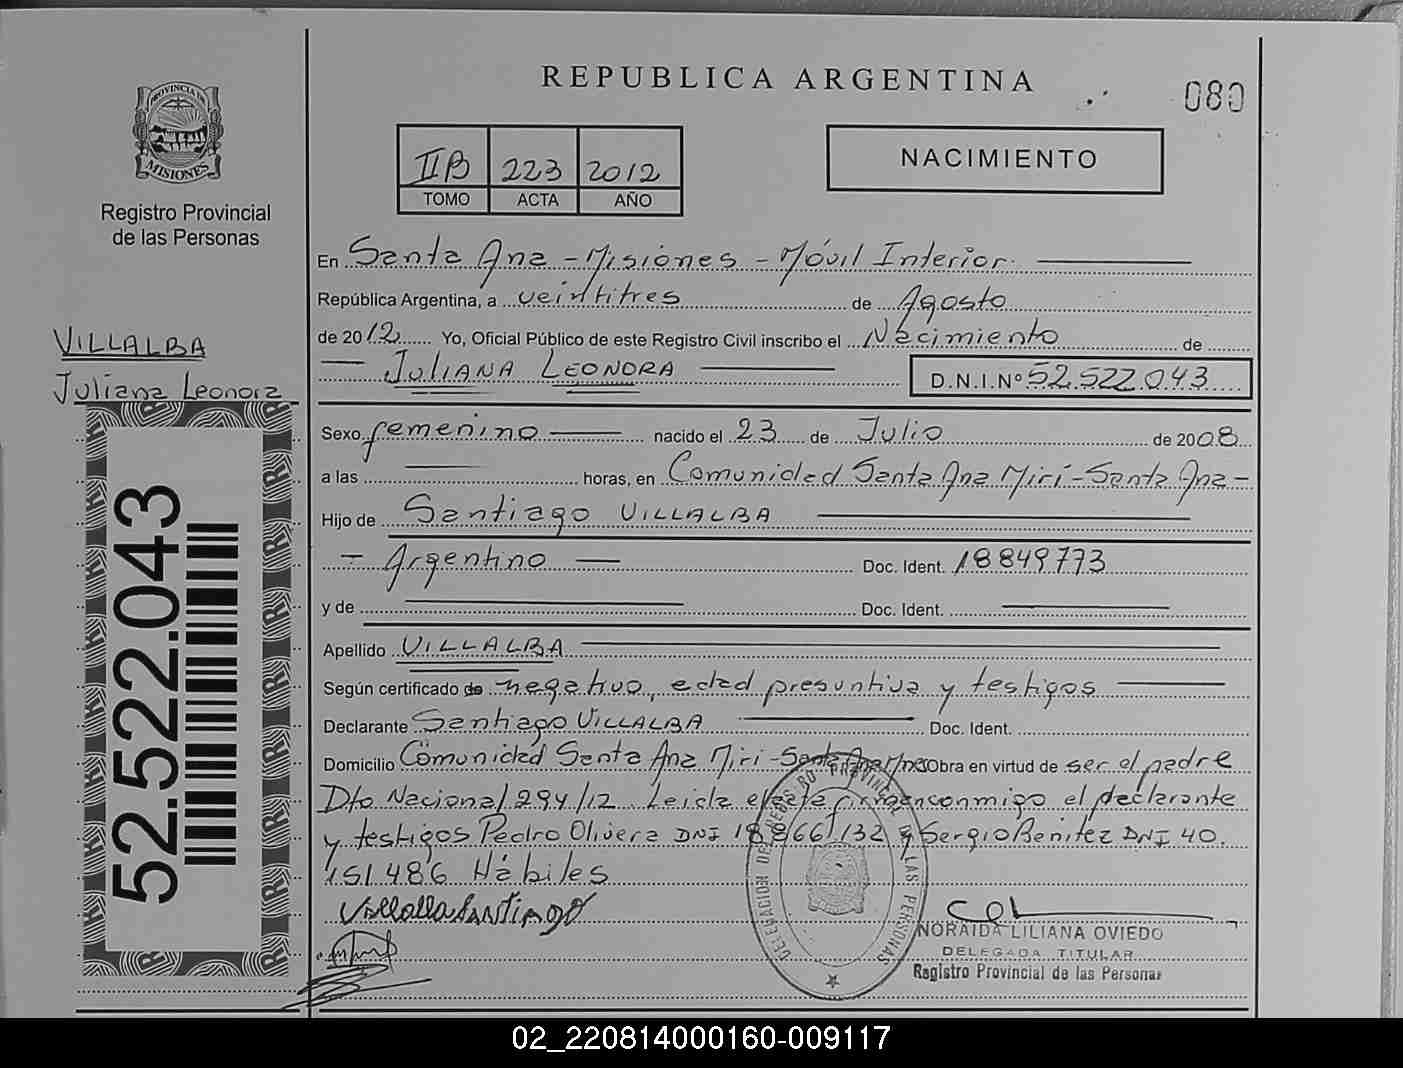 REPUBLICA ARGENTINA
080
PROVINCIA DE
MISIONES
Registro Provincial
de las Personas
IIB 223 2012
TOMO ACTA AÑO
NACIMIENTO
En Santa Ana - Misiones - Móvil Interior.
República Argentina, a veintitres de Agosto
de 2012 Yo, Oficial Público de este Registro Civil inscribo el Nacimiento de
JULIANA LEONORA
D.N.I.Nº 52.522.043
VILLALBA
Juliana Leonora
52.522.043
Sexo femenino nacido el 23 de Julio de 2008
a las horas, en Comunidad Santa Ana Mirí - Santa Ana -
Hijo de Santiago VILLALBA
- Argentino Doc. Ident. 18849773
y de Doc. Ident.
Apellido VILLALBA
Según certificado de negativo, edad presuntiva y testigos
Declarante Santiago VILLALBA Doc. Ident.
Domicilio Comunidad Santa Ana Miri - Santa Ana Obra en virtud de ser el padre
Dto Nacional 294/12. Leida el firman conmigo el declarante
y testigos Pedro Olivera DNI y Sergio Benitez DNI 40.
151486 Hábiles
Villalba SANTIAGO
DELEGACION DEL REGISTRO PROVINCIAL DE LAS PERSONAS
NORAIDA LILIANA OVIEDO
DELEGADA TITULAR
Registro Provincial de las Personas
02_220814000160-009117